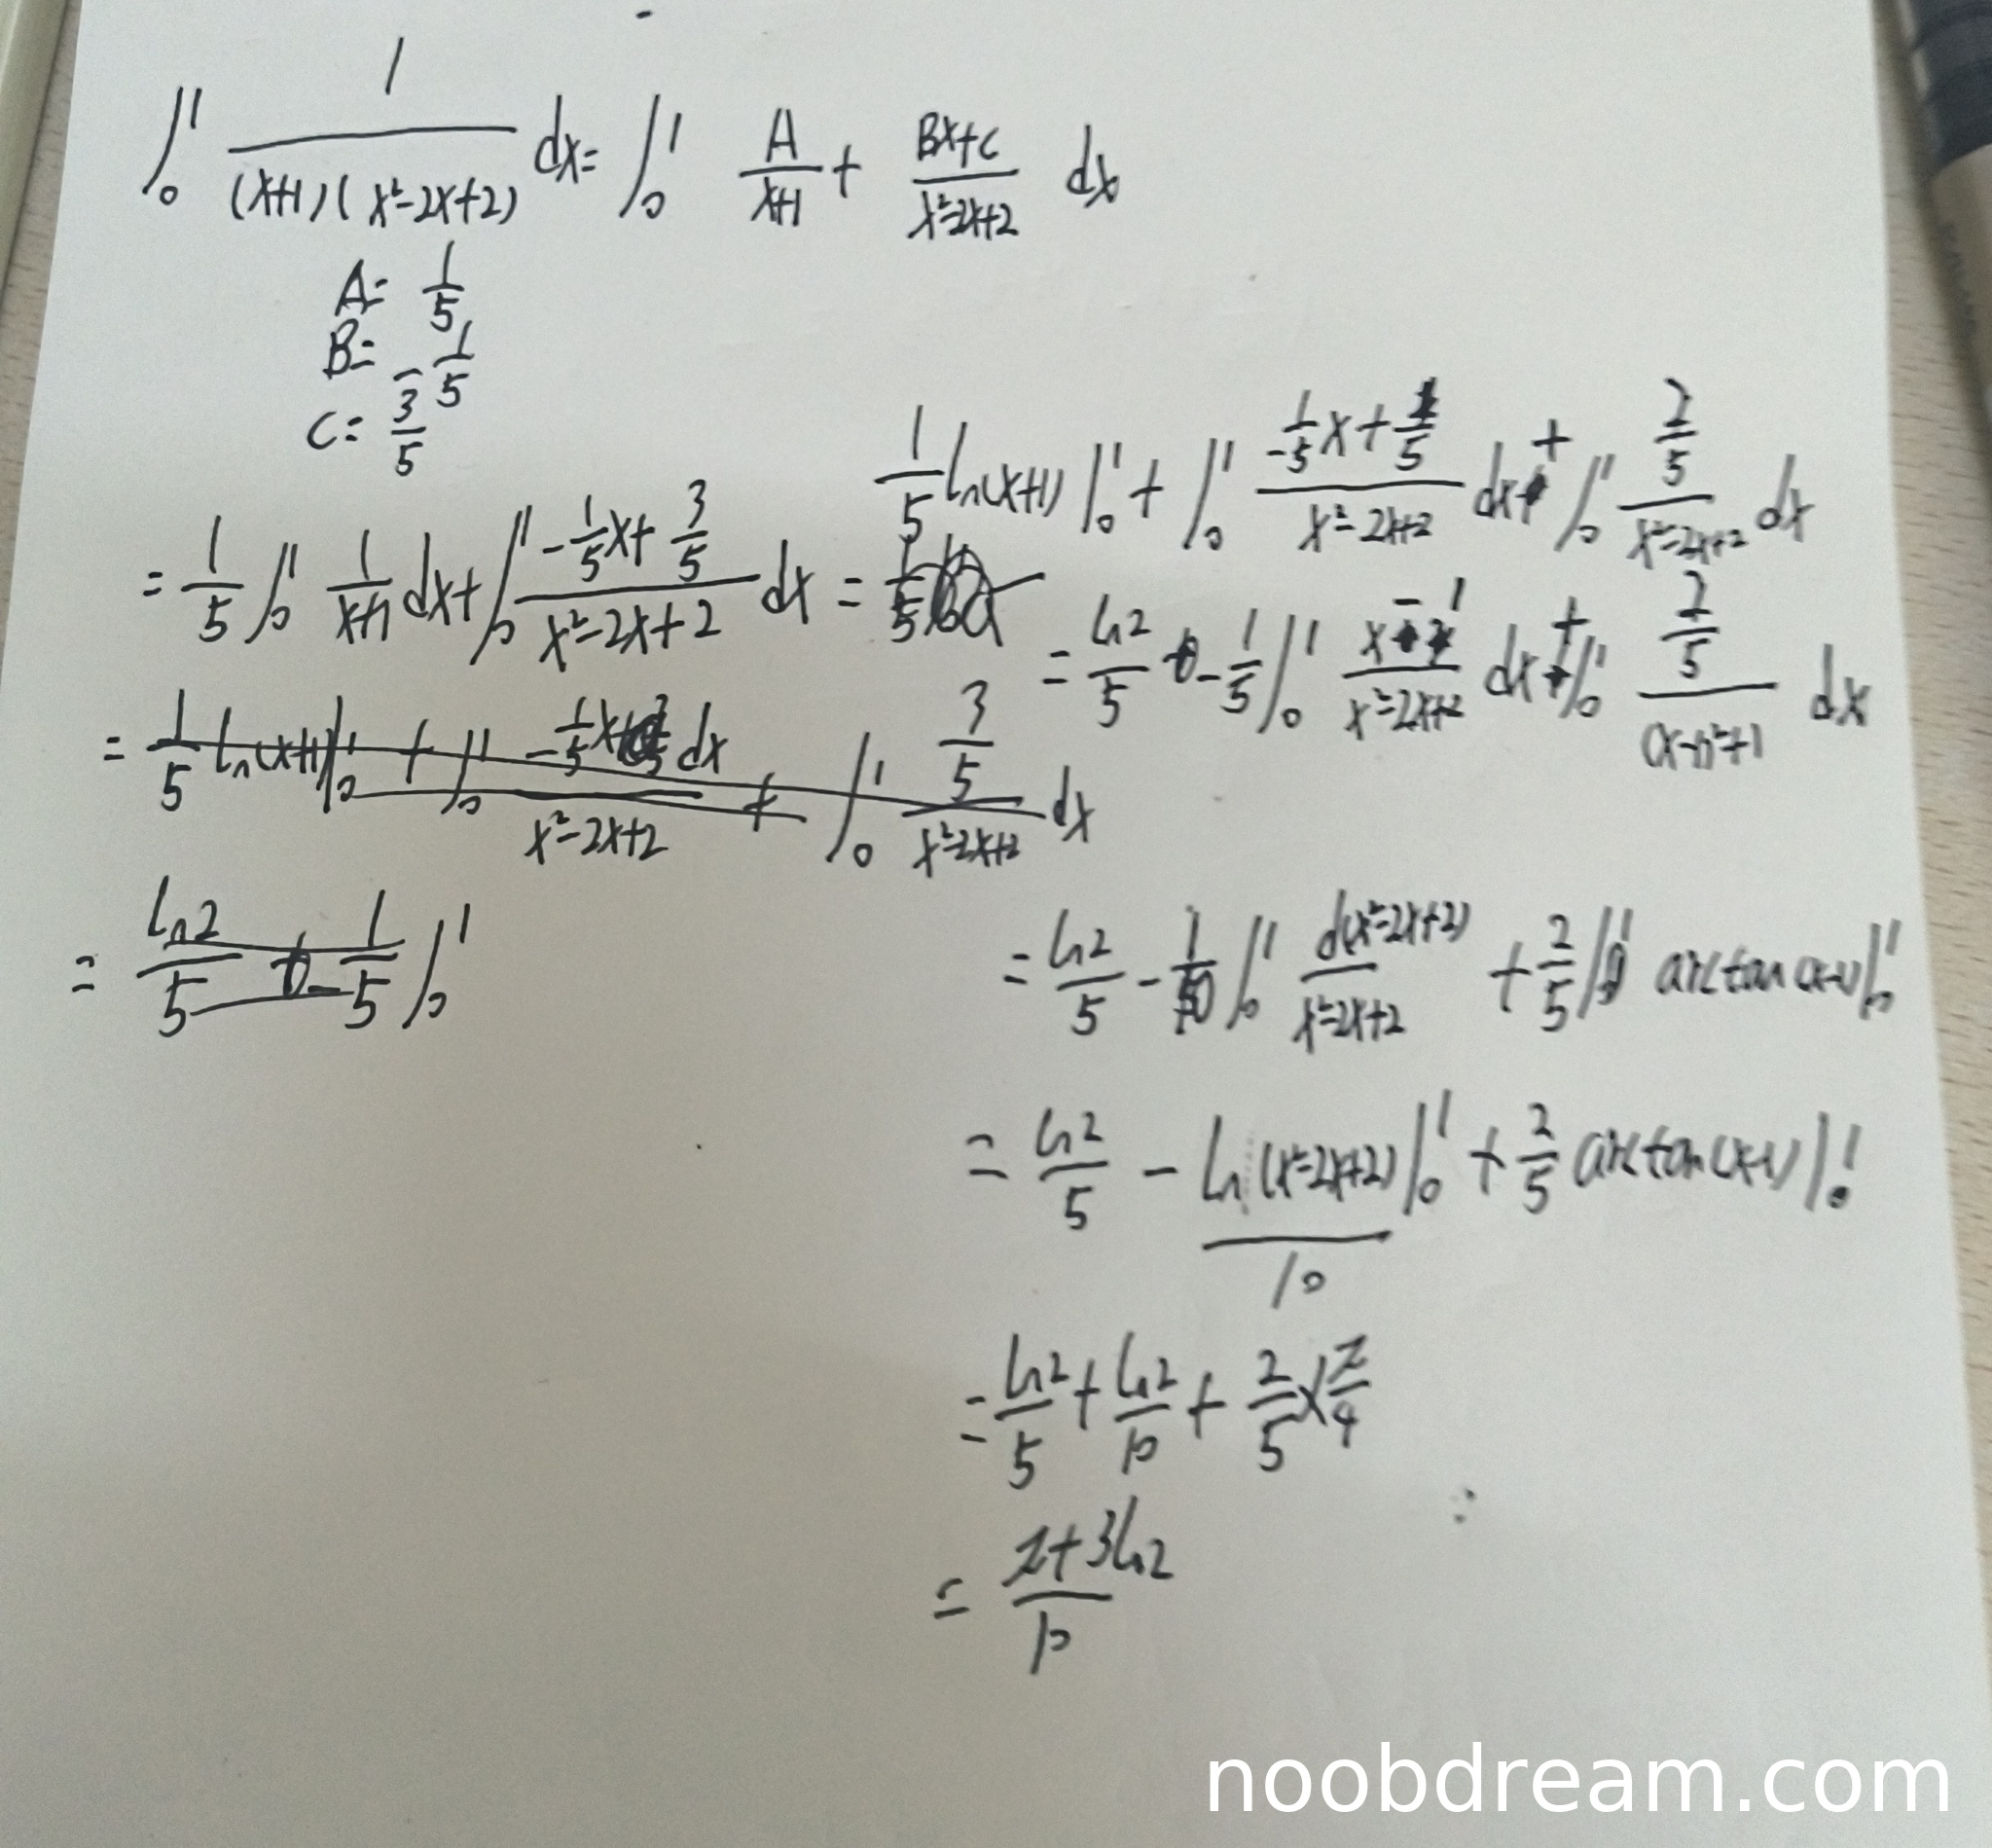 ∫₀¹ 1/((x+1)(x²-2x+2)) dx = ∫₀¹ A/(x+1) + (Bx+C)/(x²-2x+2) dx
A= 1/5
B= -1/5
C= 3/5
= 1/5 ∫₀¹ 1/(x+1) dx + ∫₀¹ (-1/5 x + 3/5)/(x²-2x+2) dx =
1/5 ln(x+1) |₀¹ + ∫₀¹ (-1/5 x + 1/5)/(x²-2x+2) dx + ∫₀¹ (2/5)/(x²-2x+2) dx
= 1/5 ln(x+1) |₀¹ + ∫₀¹ dx/(x²-2x+2) + ∫₀¹ (3/5)/(x²-2x+2) dx
= ln2/5 - 1/5 ∫₀¹
= ln2/5 - 1/5 ∫₀¹ (x-1)/(x²-2x+2) dx + ∫₀¹ (2/5)/((x-1)²+1) dx
= ln2/5 - 1/10 ∫₀¹ d(x²-2x+2)/(x²-2x+2) + 2/5 arctan(x-1) |₀¹
= ln2/5 - ln(x²-2x+2)|₀¹/10 + 2/5 arctan(x-1) |₀¹
= ln2/5 + ln2/10 + 2/5 × π/4
= (π+3ln2)/10
noobdream.com